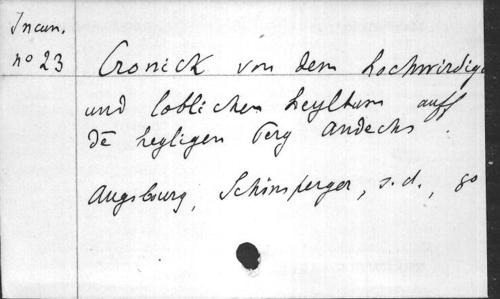 Incun.
no 23
Cronick von dem hochwirdige
und loblichen heyltum auff
dē heyligen perg Andechs.
Augsburg, Schönsperger, s.d., go